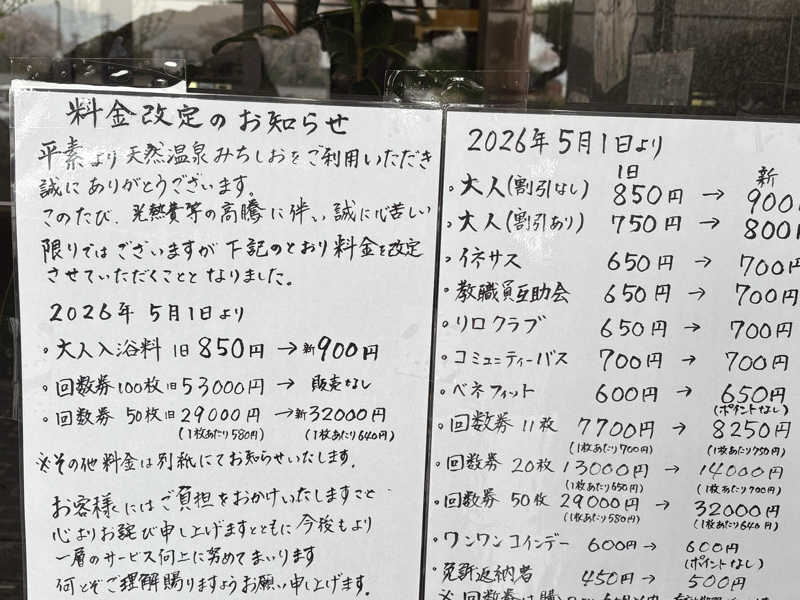 料金改定のお知らせ
平素より天然温泉みちしおをご利用いただき
誠にありがとうございます。
このたび、光熱費等の高騰に伴い誠に心苦しい
限りではございますが下記のとおり料金を改定
させていただくこととなりました。
2026年5月1日より
。大人入浴料 旧850円→新900円
。回数券100枚旧53000円→販売なし
。回数券 50枚旧29000円→新32000円
(1枚あたり580円) (1枚あたり640円)
※その他料金は別紙にてお知らせいたします。
お客様にはご負担をおかけいたしますこと
心よりお詫び申し上げますとともに今後もより
一層のサービス向上に努めてまいります
何とぞご理解賜りますようお願い申し上げます。
2026年5月1日より
旧 新
。大人(割引なし) 850円 → 900円
。大人(割引あり) 750円 → 800円
。イネサス 650円 → 700円
。教職員互助会 650円 → 700円
。リロクラブ 650円 → 700円
。コミュニティーバス 700円 → 700円
。ベネフィット 600円 → 650円
(ポイントなし)
。回数券 11枚 7700円 → 8250円
(1枚あたり700円) (1枚あたり750円)
。回数券 20枚 13000円 → 14000円
(1枚あたり650円) (1枚あたり700円)
。回数券 50枚 29000円 → 32000円
(1枚あたり580円) (1枚あたり640円)
。ワンワンコインデー 600円 → 600円
(ポイントなし)
。免許返納者 450円 → 500円
※回数券は